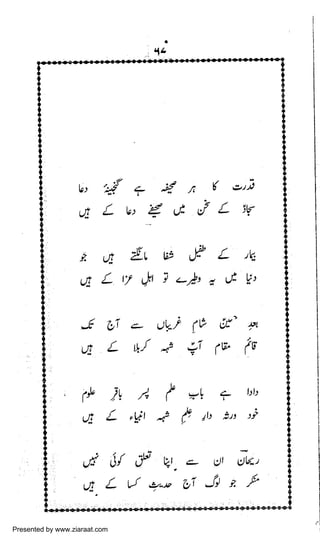 ۹۷
قدرت کا ہر صحیفہ ہے گنجینۂ دعا
سجادؑ کے سخن میں صحیفے دعا کے ہیں
بیمار کے طفیل شفا مانگتے ہیں جو
دنیا میں یہ وطیرے تو اہلِ عزا کے ہیں
بعدِ حسینؑ شامِ غریباں سے آج تک
قائم مقام آپؑ شہہِ کربلا کے ہیں
دادا ہے بابِ علم پسر باقرِ علوم
خود ورثہ دارِ علمِ شہہِ انبیاء کے ہیں
ریحانؔ ان سے اپنا تعلق کوئی نہیں
منکر جو لوگ آج حدیثِ کسا کے ہیں
Presented by www.ziaraat.com